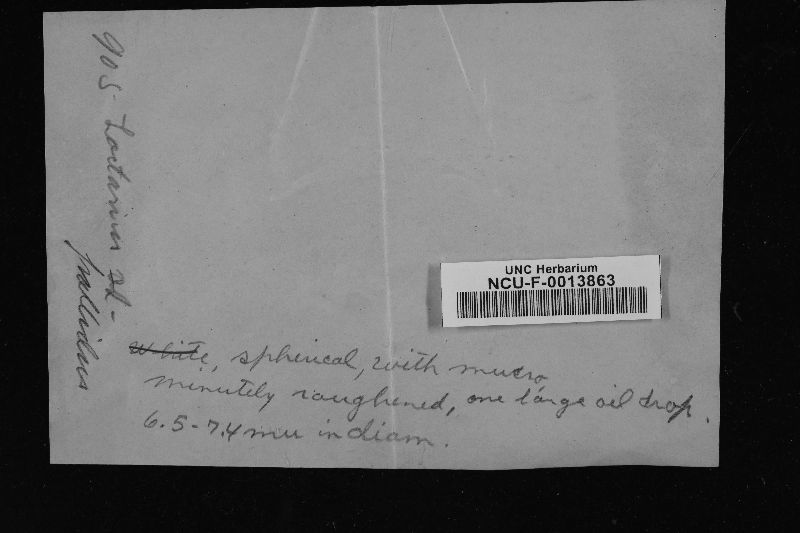 905- Lactarius sub-
pallidus
UNC Herbarium
NCU-F-0013863
White, spherical, with mucro,
minutely roughened, one large oil drop.
6.5-7.4 mu in diam.